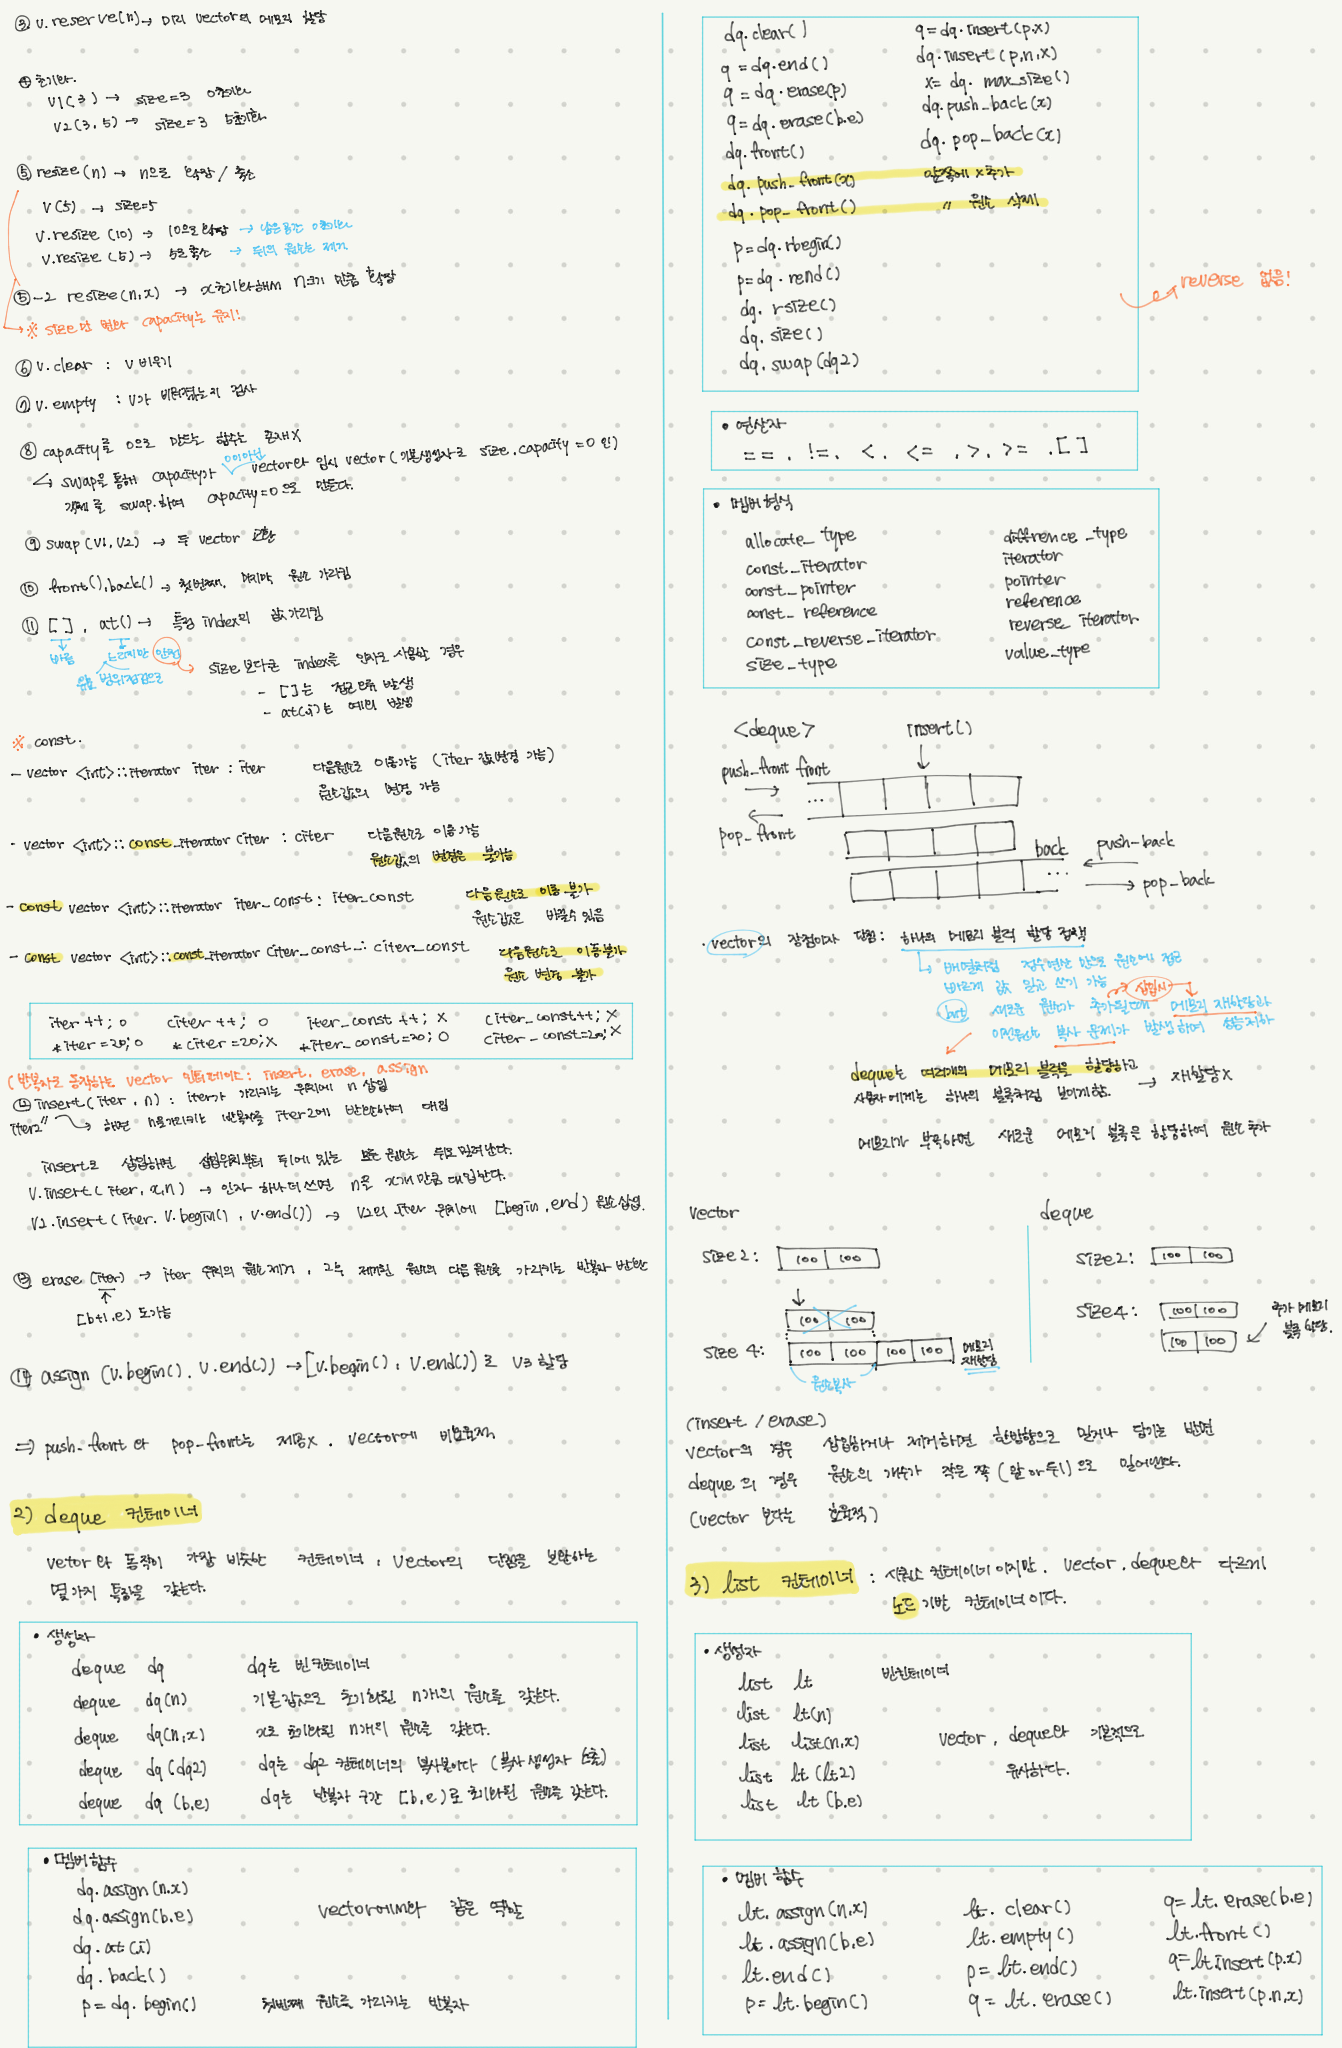 ③ v.reserve(n) → 미리 vector의 메모리 할당
④ 초기화.
v1(3) → size=3 0초기화
v2(3,5) → size=3 5초기화
⑤ resize(n) → n으로 확장 / 축소
v(5) → size=5
v.resize(10) → 10으로 확장 → 남은공간 0초기화
v.resize(5) → 5로 축소 → 뒤의 원소는 제거
⑤-2 resize(n,x) → x초기화해서 n크기 만큼 확장
→ ※ size만 변화 capacity는 유지!
⑥ v.clear : v 비우기
⑦ v.empty : v가 비워졌는지 검사
⑧ capacity를 0으로 만드는 함수는 존재X
↳ swap을 통해 capacity가 0이아닌 vector와 임시 vector(기본생성자로 size,capacity=0인)
객체를 swap하여 capacity=0으로 만든다.
⑨ swap(v1,v2) → 두 vector 교환
⑩ front(),back() → 첫번째, 마지막 원소 가리킴
⑪ [ ], at() → 특정 index의 값 가리킴
빠름 느리지만 안전
범위점검으로
size보다큰 index를 인자로 사용할 경우
- [ ]는 접근오류 발생
- at(i)는 예외 발생
※ const.
- vector <int>::iterator iter : iter 다음원소로 이동가능 (iter 값변경 가능)
원소값의 변경 가능
- vector <int>::const_iterator citer : citer 다음원소로 이동가능
원소값의 변경은 불가능
- const vector <int>::iterator iter_const : iter_const 다음원소로 이동 불가
원소값은 바꿀수 있음
- const vector <int>::const_iterator citer_const : citer_const 다음원소로 이동불가
원소 변경 불가
iter ++; o citer ++; o iter_const ++; X citer_const++; X
*iter=20; o *citer=20; X *iter_const=20; O citer_const=20; X
(반복자로 동작하는 vector 인터페이스: insert, erase, assign
⑫ insert(iter, n) : iter가 가리키는 위치에 n 삽입
iter2 " → 하면 n을가리키는 반복자를 iter2에 반환하며 대입
insert로 삽입하면 삽입위치부터 뒤에 있는 모든 원소는 뒤로 밀려난다.
v.insert(iter, x,n) → 인자 하나더 쓰면 n을 x개 만큼 대입한다.
v2.insert(iter, v.begin(), v.end()) → v2의 iter 위치에 [begin,end) 원소삽입.
⑬ erase (iter) → iter 위치의 원소제거, 그후 제거된 원소의 다음 원소를 가리키는 반복자 반환
[b+1,e) 도가능
⑭ assign (v.begin(), v.end()) → [v.begin(), v.end())로 v3 할당
⇒ push-front 와 pop-front는 제공X. vector에 비효율적
2) deque 컨테이너
vetor 와 동작이 가장 비슷한 컨테이너, vector의 단점을 보완하는
몇가지 특징을 갖는다.
• 생성자
deque dq dq는 빈 컨테이너
deque dq(n) 기본값으로 초기화된 n개의 원소를 갖는다.
deque dq(n,x) x로 초기화된 n개의 원소를 갖는다.
deque dq(dq2) dq는 dq2 컨테이너의 복사본이다 (복사 생성자 호출)
deque dq (b,e) dq는 반복자 구간 [b,e)로 초기화된 원소를 갖는다.
• 멤버함수
dq.assign(n,x)
dq.assign(b,e) vector에서와 같은 역할
dq.at(i)
dq.back()
p=dq.begin() 첫번째 원소를 가리키는 반복자
dq.clear() q=dq.insert(p,x)
q=dq.end() dq.insert(p,n,x)
q=dq.erase(p) x=dq.max_size()
q=dq.erase(b,e) dq.push_back(x)
dq.front() dq.pop_back(x)
dq.push_front(x) 앞쪽에 x추가
dq.pop_front() " 원소 삭제
p=dq.rbegin()
p=dq.rend()
dq.rsize()
dq.size()
dq.swap(dq2)
→ reverse 없음!
• 연산자
==, !=, <, <=, >, >=, [ ]
• 멤버형식
allocate_type diffrence_type
const_iterator iterator
const_pointer pointer
const_reference reference
const_reverse_iterator reverse_iterator
size_type value_type
<deque> insert()
push_front front
...
pop_front
back push-back
...
pop-back
• vector의 장점이자 단점: 하나의 메모리 블럭 할당 정책
↳ 배열처럼 정수연산 만으로 원소에 접근
빠르게 값 읽고 쓰기 가능
but 새로운 원소가 추가될때 삽입시 메모리 재할당과
이전원소 복사 문제가 발생하여 성능저하
deque는 여러개의 메모리 블럭을 할당하고
사용자에게는 하나의 블록처럼 보이게함. → 재할당X
메모리가 부족하면 새로운 메모리 블록은 할당하여 원소추가
vector deque
size 2: 100 100
size 2: 100 100
100 100
size 4: 100 100 100 100 메모리 재할당
원소복사
size 4: 100 100
100 100
추가 메모리
블록 할당.
(insert / erase)
vector의 경우 삽입하거나 제거하면 한방향으로 밀거나 당기는 반면
deque의 경우 원소의 개수가 작은 쪽(앞 or 뒤)으로 밀어낸다.
(vector 보다는 효율적)
3) list 컨테이너 : 시퀀스 컨테이너 이지만, vector, deque와 다르게
노드 기반 컨테이너 이다.
• 생성자
list lt 빈컨테이너
list lt(n)
list list(n,x) vector, deque와 기본적으로
list lt (lt2) 유사하다.
list lt (b,e)
• 멤버 함수
lt.assign(n,x) lt.clear() q=lt.erase(b,e)
lt.assign(b,e) lt.empty() lt.front()
lt.end() p=lt.end() q=lt.insert(p,x)
p=lt.begin() q=lt.erase() lt.insert(p,n,x)